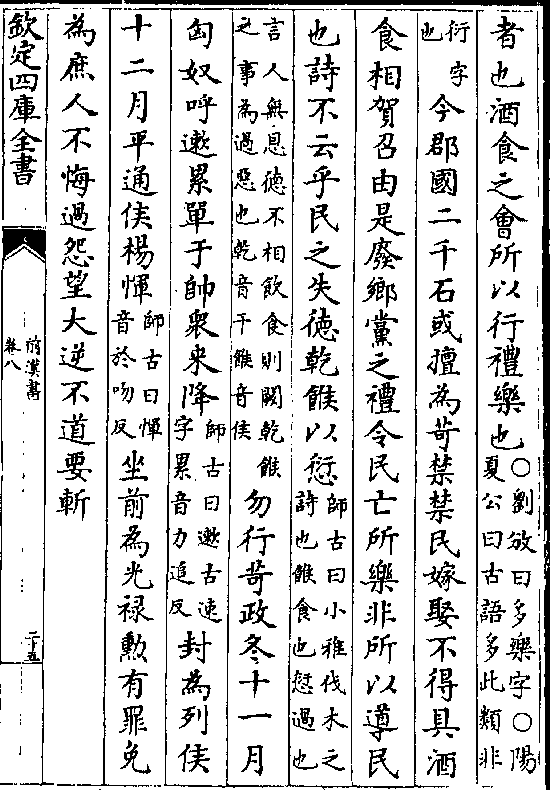 者也酒食之會所以行禮樂也○劉攽曰多樂字○陽夏公曰古語多此類非
衍字也今郡國二千石或擅為苛禁禁民嫁娶不得具酒
食相賀召由是廢鄉黨之禮令民亡所樂非所以導民
也詩不云乎民之失徳乾餱以愆師古曰小雅伐木之詩也餱食也愆過也
言人無恩德不相飲食則闕乾餱之事為過惡也乾音干餱音侯勿行苛政冬十一月
匈奴呼遬累單于帥衆来降師古曰遬古速字累音力追反封為列侯
十二月平通侯楊惲師古曰惲音於吻反坐前為光禄勲有罪免
為庶人不悔過怨望大逆不道要斬
欽定四庫全書
前漢書
卷八
二十五